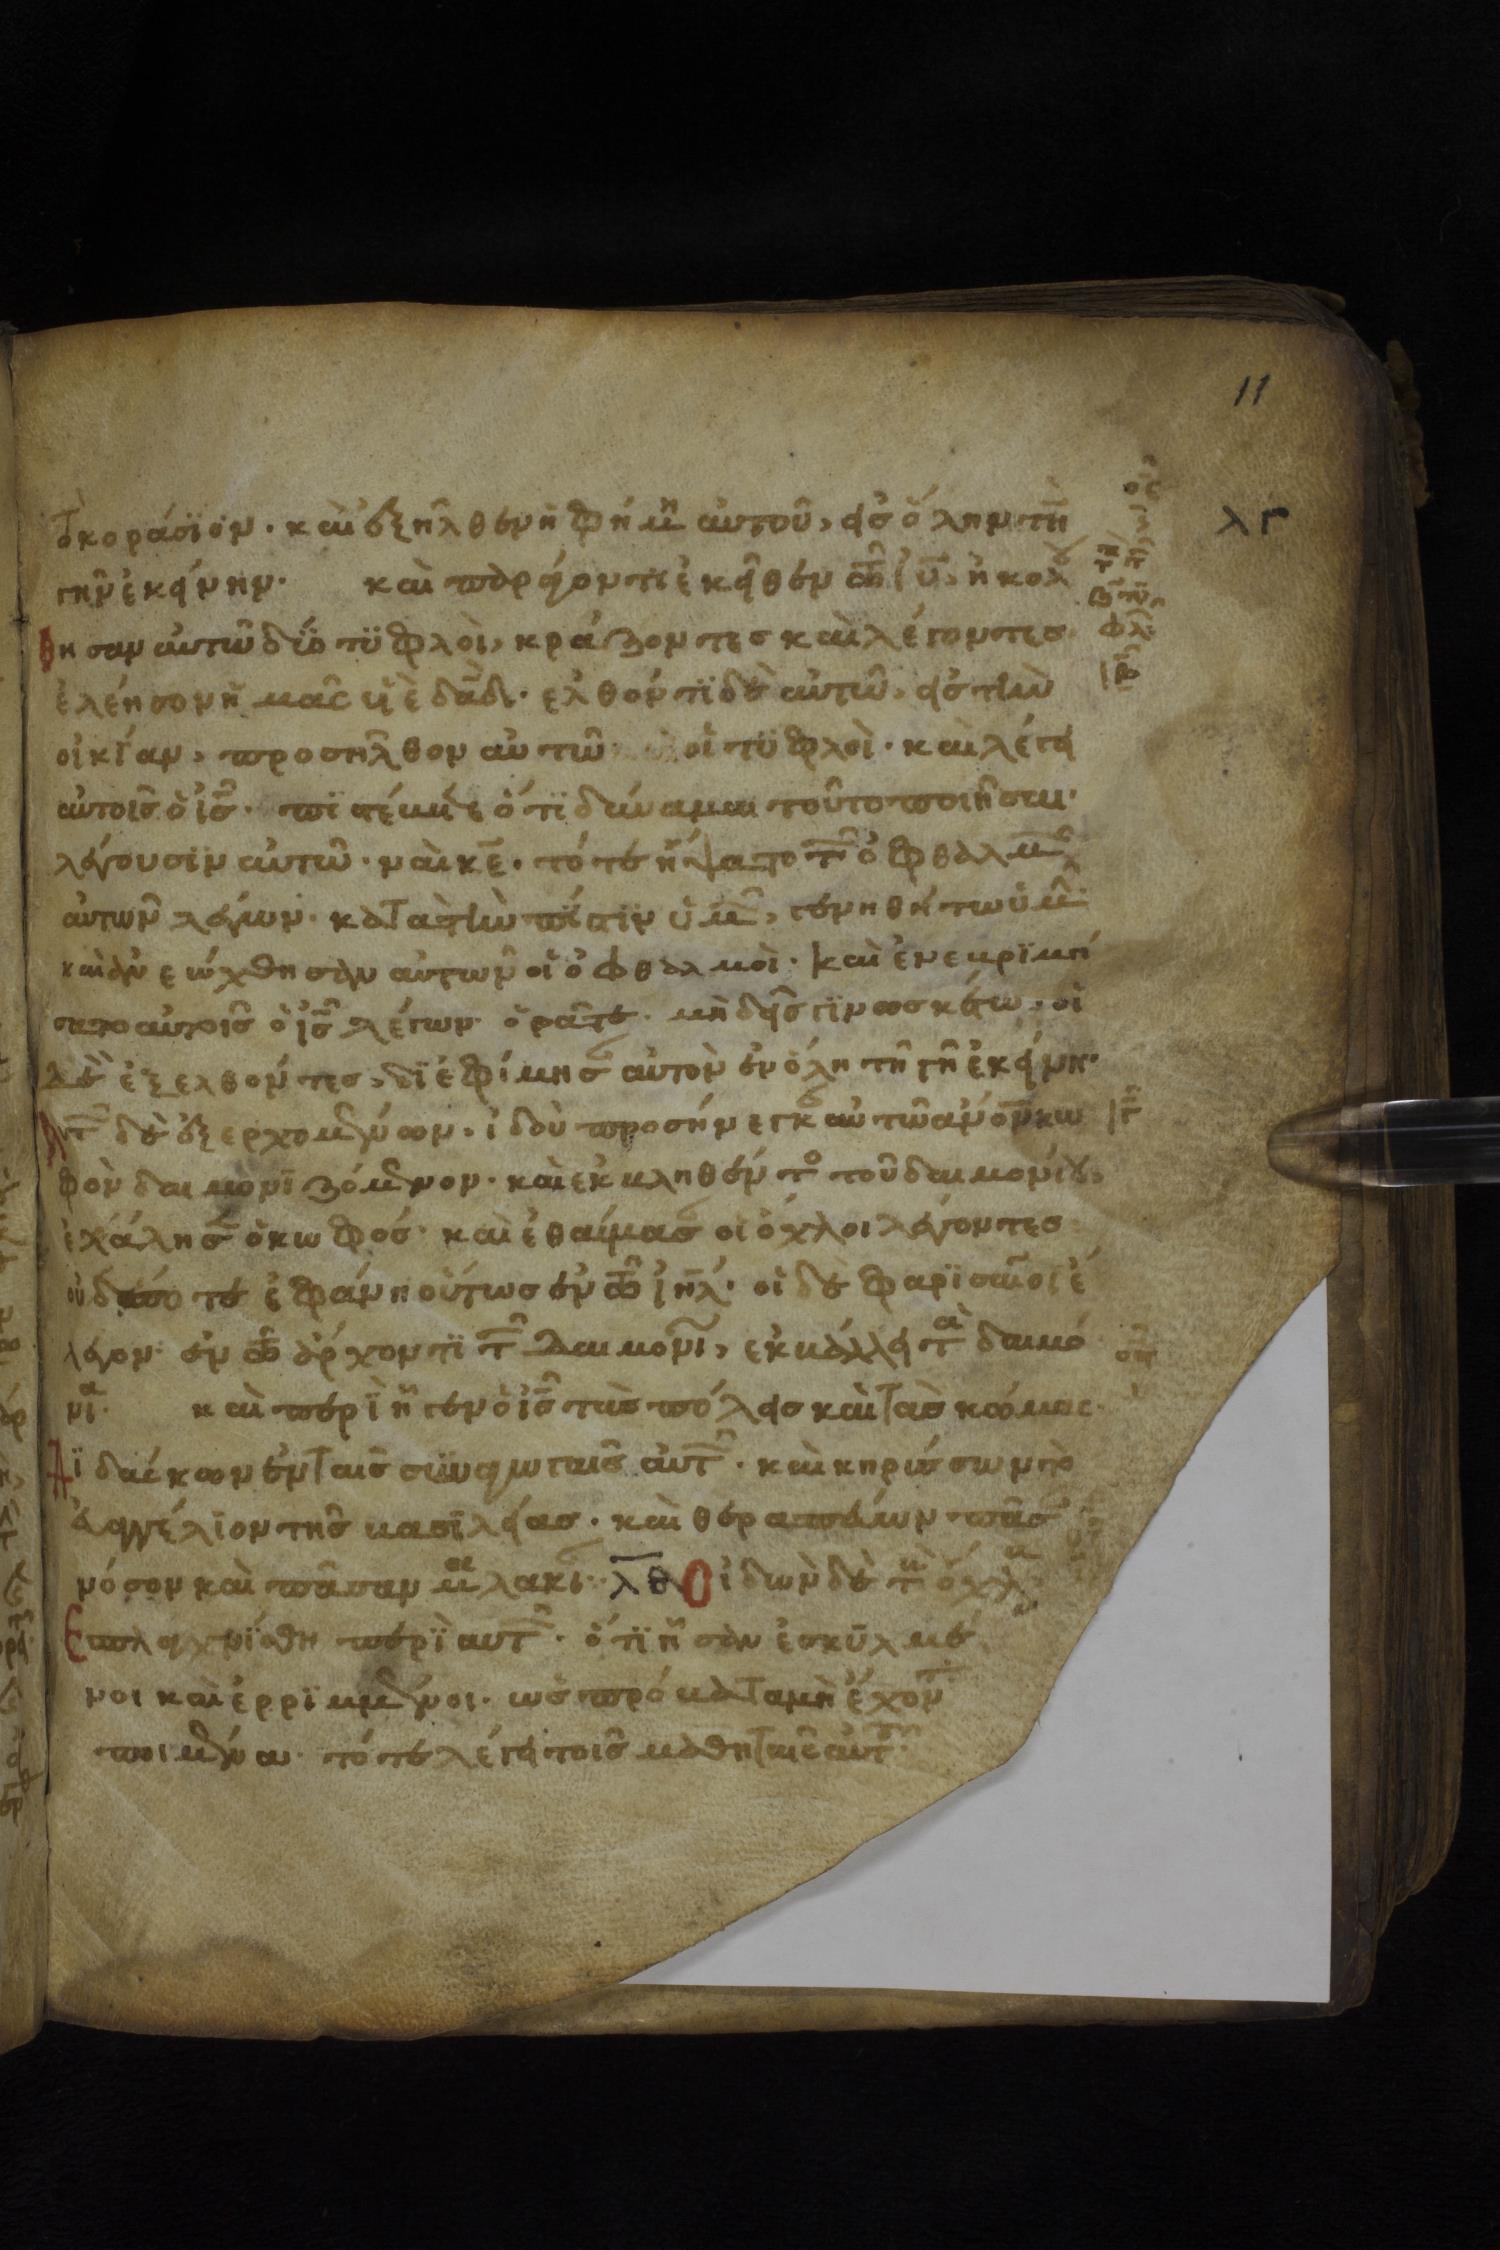 11
λγ
τὸ κοράσϊον· καὶ ἐξῆλθεν ἡ φήμη αὐτοῦ, εἰς ὅλην τὴν
γῆν ἐκείνην· καὶ παράγοντϊ ἐκεῖθεν τῶ ιυ, ἠκολού
θησαν αὐτῶ δύο τϋφλοὶ, κράζοντες καὶ λέγοντες·
ἐλέησον ἡμᾶς υἱὲ δαδ· ἐλθόντϊ δὲ αὐτῶ, εἰς τὴν
οἰκίαν, προσῆλθον αὐτῶ οἱ τϋφλοὶ· καὶ λέγει
αὐτοῖς ὁ ις· πϊστεύετε ὅτϊ δύναμαι τοῦτο ποιῆσαι·
λέγουσϊν αὐτῶ· ναὶ κε· τότε ἥψατο τῶν ὀφθαλμῶν
αὐτῶν λέγων· κατὰ τὴν πίστϊν ὑμῶν, γενηθήτω ὑμῖν·
καὶ ἀνεώχθησαν αὐτῶν οἱ ὀφθαλμοὶ· καὶ ἐνεβρϊμή
σατο αὐτοῖς ὁ ις λέγων· ὁρᾶτε· μηδεὶς γϊνωσκέτω· οἱ
δὲ ἐξελθόντες, δϊεφήμησαν αὐτὸν ἐν ὅλη τῆ γῆ ἐκείνη·
Αὐτῶν δὲ ἐξερχομένων· ἰδοὺ προσήνεγκαν αὐτῶ ἀνον κω
φὸν δαιμονϊζόμενον· καὶ ἐκβληθέντος τοῦ δαιμονίου,
ἐλάλησεν ὁ κωφός· καὶ ἐθαύμασαν οἱ ὄχλοι λέγοντες·
οὐδέποτε ἐφάνη οὕτως ἐν τῶ ιηλ· οἱ δὲ φαρϊσαῖοι ἔ
λεγον· ἐν τῶ ἄρχοντϊ τῶν δαιμονίων, ἐκβάλλει τὰ δαιμό
νια· καὶ περϊῆγεν ὁ ις τὰς πόλεις καὶ τὰς κώμας·
Δϊδάσκων ἐν ταῖς συναγωγαῖς αὐτῶν· καὶ κηρύσσων τὸ
εὐαγγέλϊον τῆς βασϊλείας· καὶ θεραπεύων πᾶσαν
νόσον καὶ πᾶσαν μαλακίαν· λθ ἰδὼν δὲ τοὺς ὄχλους
Ἐσπλαγχνίσθη περϊ αὐτῶν· ὅτϊ ἦσαν ἐσκϋλμέ
νοι καὶ ἐρρϊμμένοι· ὡς πρόβατα μὴ ἔχοντα
ποιμένα· τότε λέγει τοῖς μαθηταῖς αὐτοῦ·